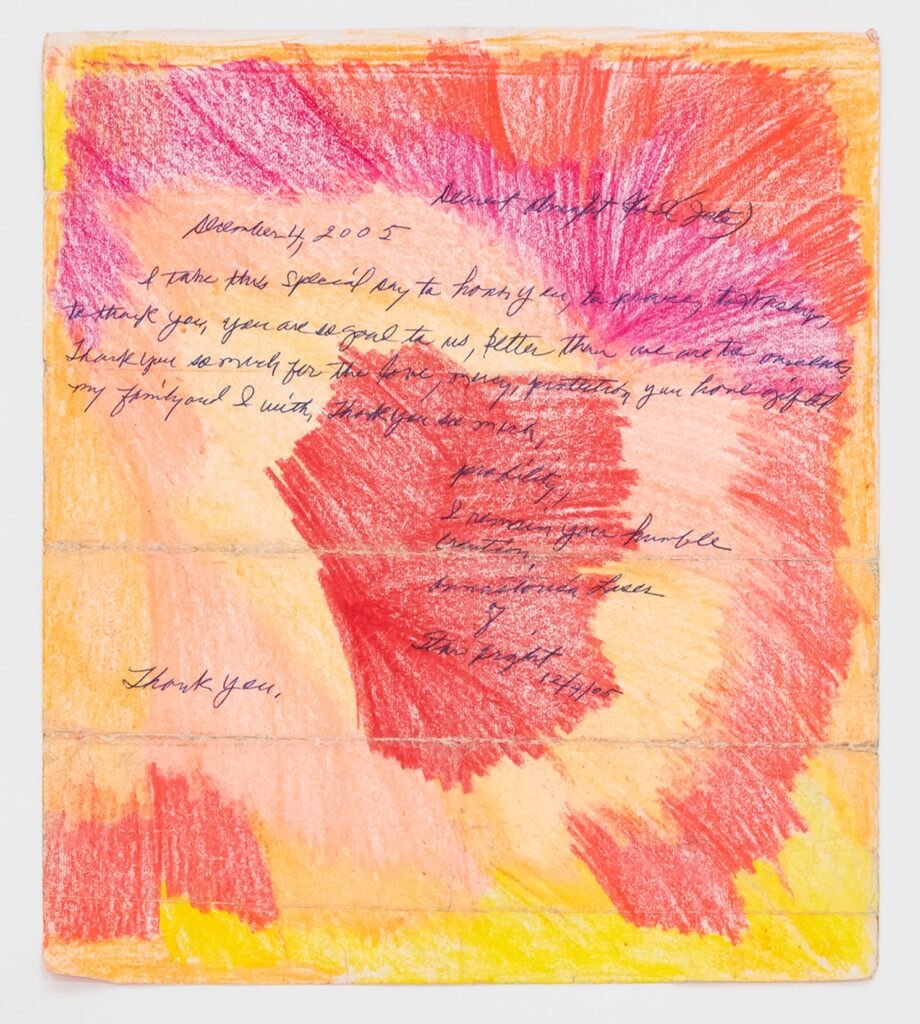 Dearest
December 4, 2005
I take this special day to honor you, to praise, to worship,
to thank you, you are so good to us, better than we are to ourselves
Thank you so much for the love, mercy, protection you have gifted
my family and I with, Thank you so much,
I remain your humble
creation,
of
Star
12/4/05
Thank you.